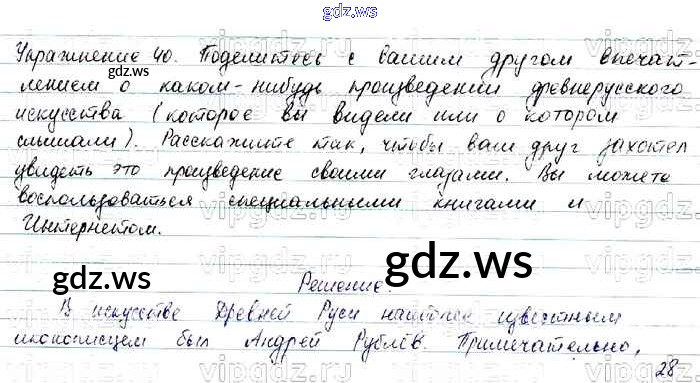 gdz.ws
Упражнение 40. Поделитесь с вашим другом впечат-
gdz.ws
лением о каком-нибудь произведении древнерусского
искусства (которое вы видели или о котором
слышали). Расскажите так, чтобы ваш друг захотел
увидеть это произведение своими глазами. Вы можете
воспользоваться специальными книгами и
Интернетом.
gdz.ws gdz.ws
Решение.
В искусстве Древней Руси наиболее известным
иконописцем был Андрей Рублёв. Примечательно,
28